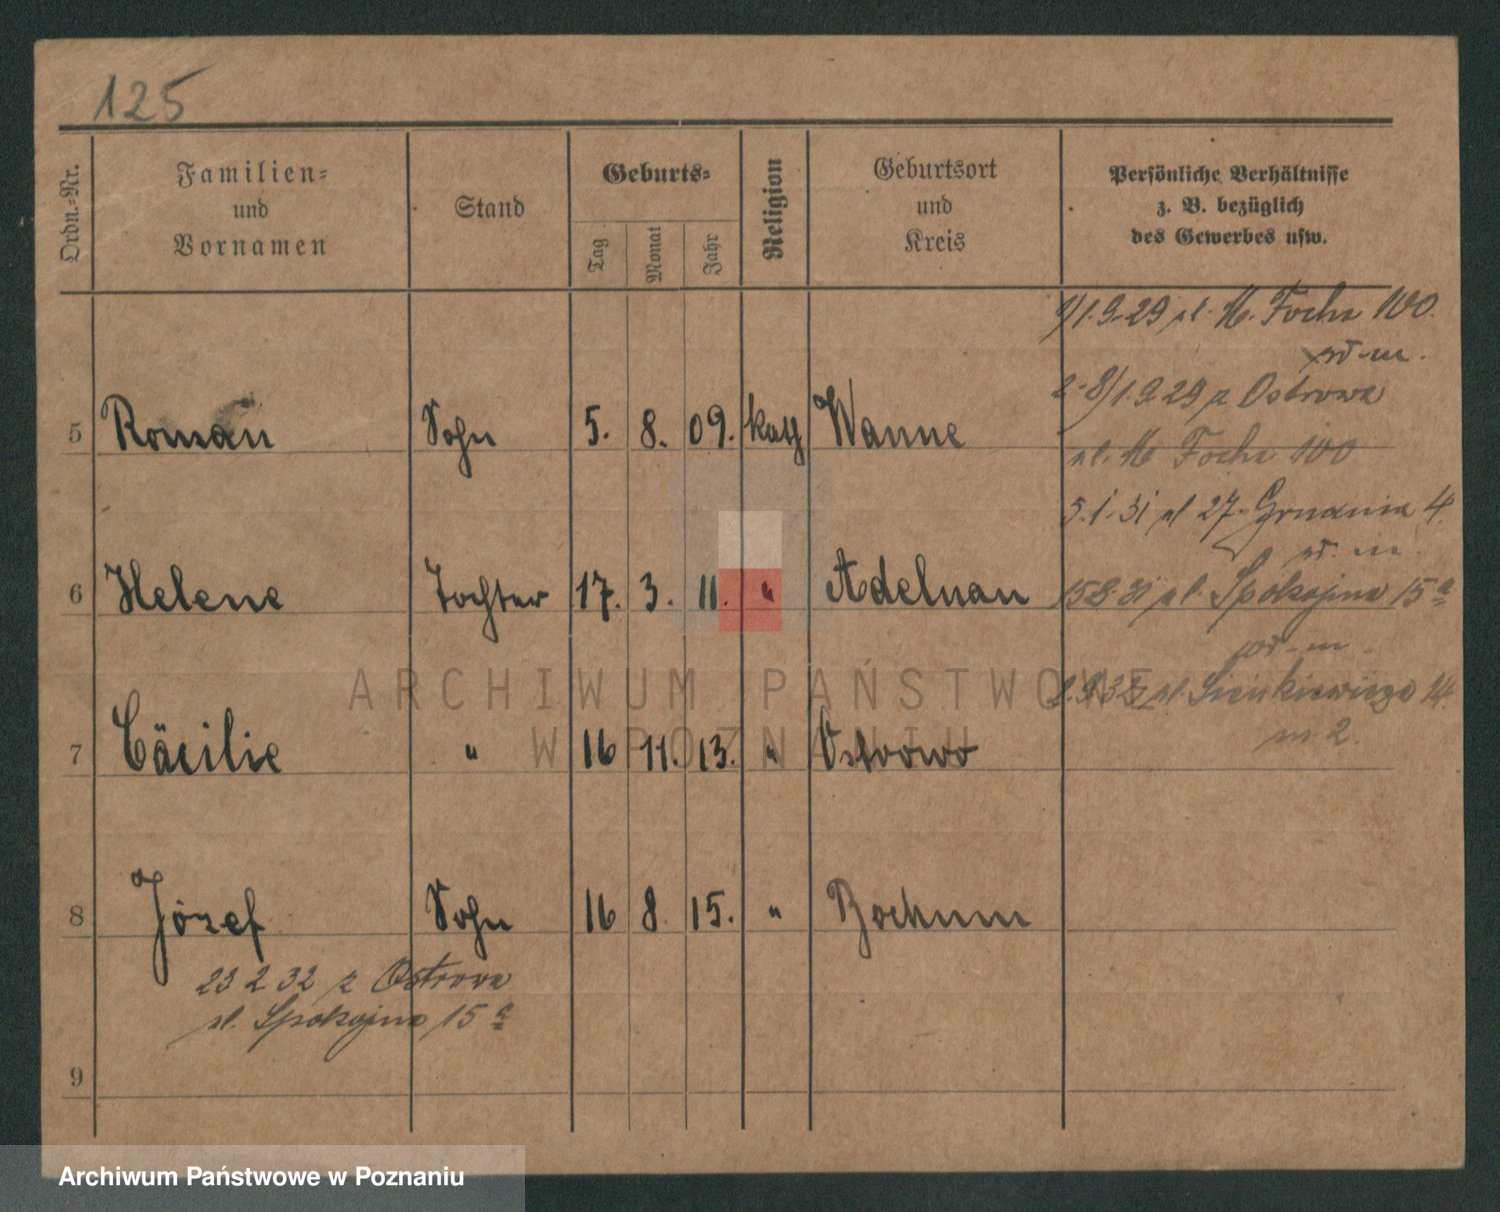 125
Ordn.-Nr.
Familien-
und
Vornamen
Stand
Geburts-
Tag
Monat
Jahr
Religion
Geburtsort
und
Kreis
Persönliche Verhältnisse
z. B. bezüglich
des Gewerbes usw.
1/1.9.29 ul. M. Focha 100.
2-8/1.9.29 z Ostrowa
ul. M Focha 100
5 Roman Sohn 5. 8. 09. kath Wanne
5.1.31 ul 27. Grudnia 4.
6 Helene Tochter 17. 3. 11. " Adelnau
15.8.31 ul. Spokojna 15a
2.9.32 ul. Sienkiewicza 14
m 2.
7 Cäcilie " 16 11. 13. " Ostrowo
8 Józef Sohn 16 8. 15. " Bochum
23 2 32 z Ostrowa
ul. Spokojna 15a
9
ARCHIWUM PAŃSTWOWE
W POZNANIU
Archiwum Państwowe w Poznaniu